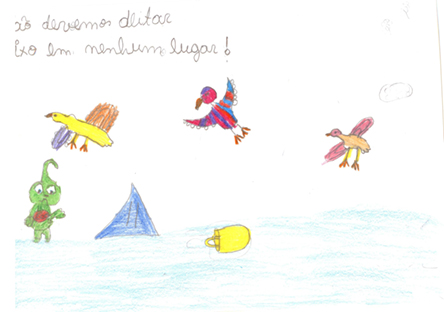 não devemos deitar
lixo em nenhum lugar!